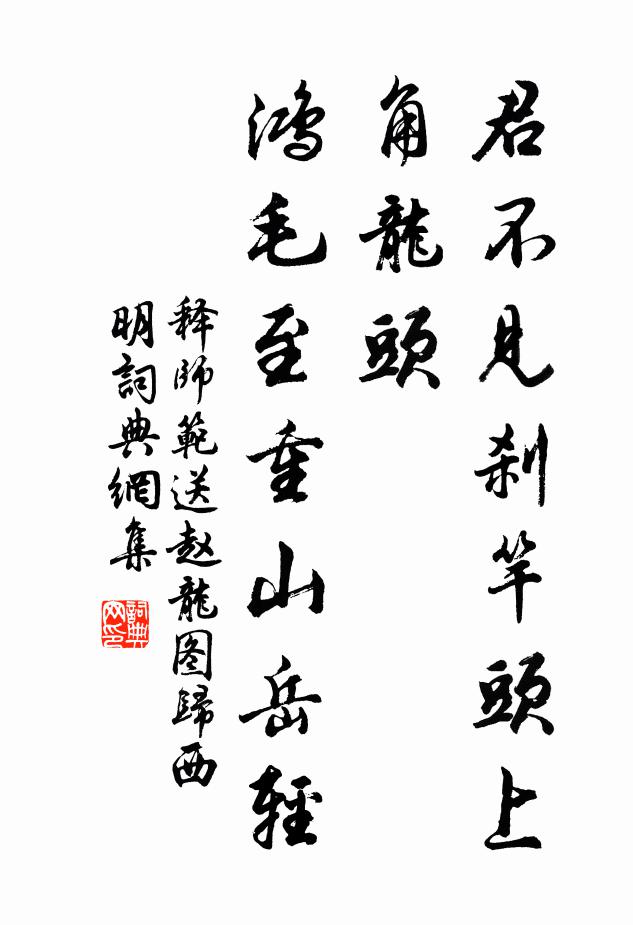 君不見刹竿頭上
角龍頭
鴻毛至重山岳輕
释師範送赵龍图歸西
明詞典網集
詞典网印